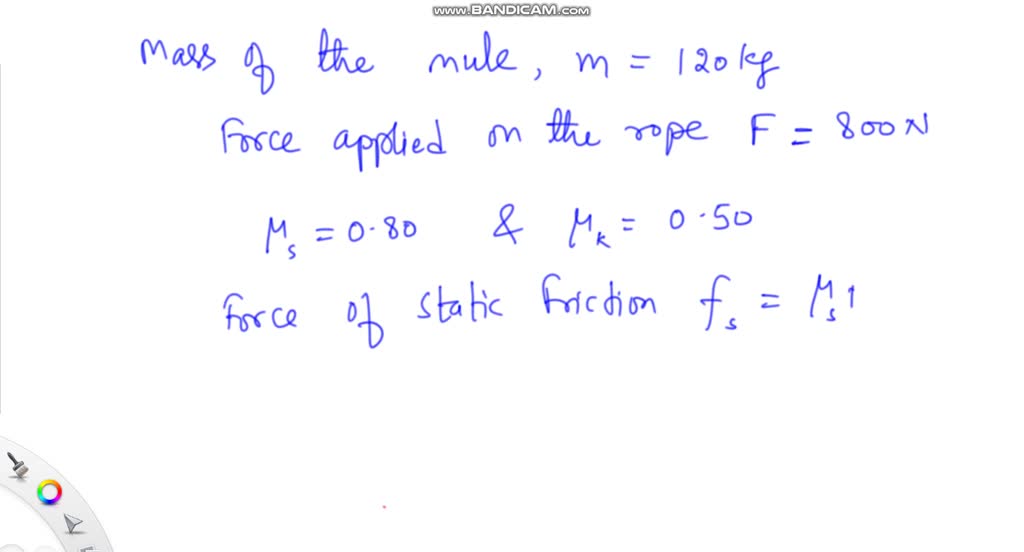 www.BANDICAM.com
Mass of the mule, m = 120 kg
Force applied on the rope F = 800 N
μs = 0.80 & μk = 0.50
Force of static friction fs = μs